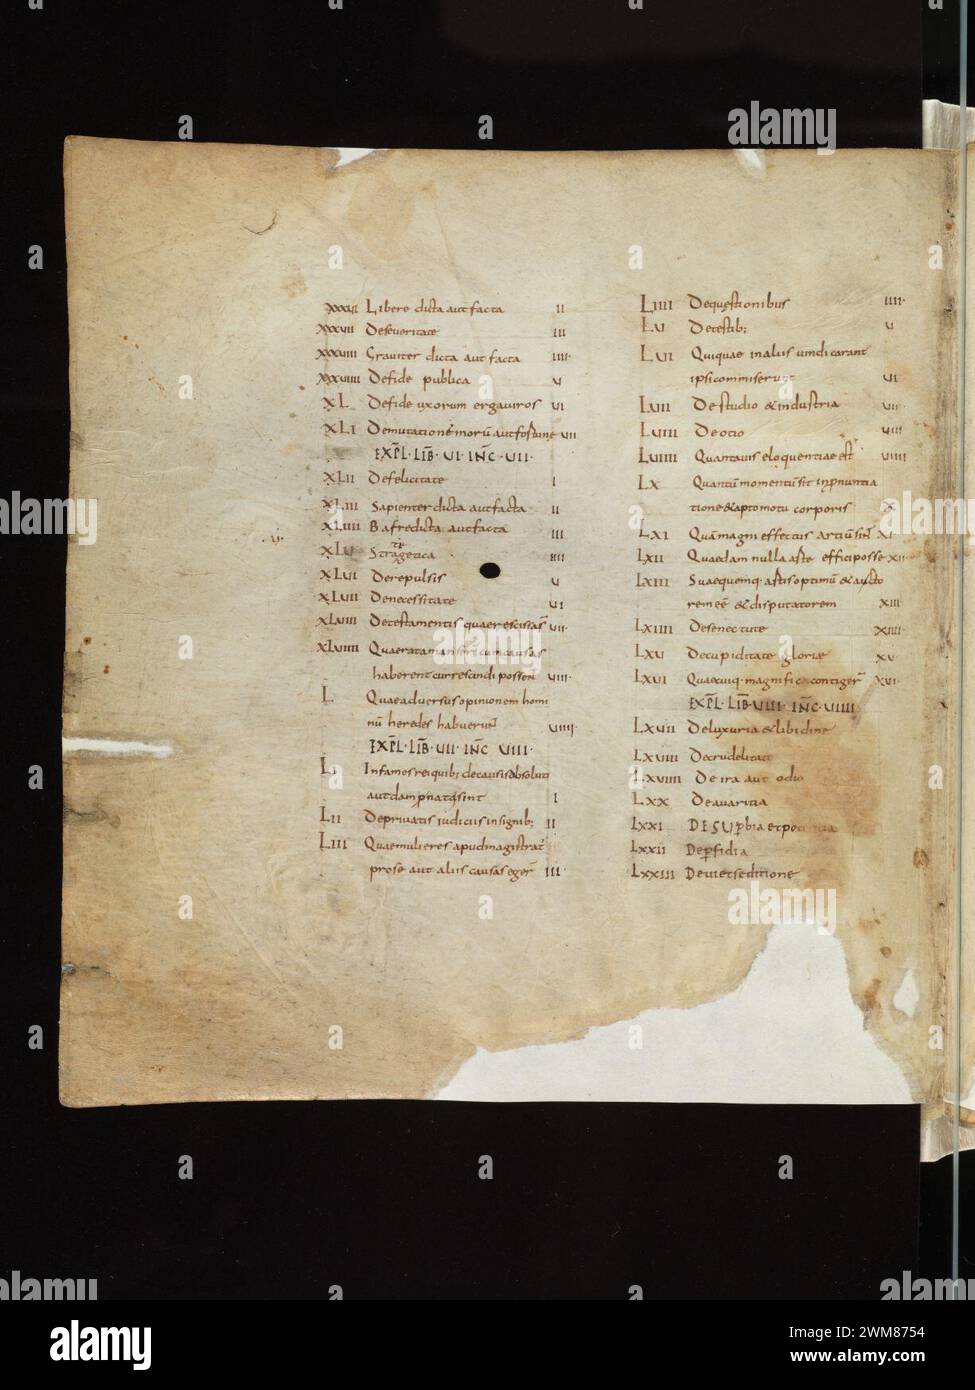 XXXVI Libere dicta aut facta II
XXXVII Deseveritate III
XXXVIII Graviter dicta aut facta IIII
XXXVIIII Defide publica V
XL Defide uxorum ergaviros VI
XLI Demutatione morū aut fortune VII
EXPL̄ · LIB̄ · VI · INC̄ · VII ·
XLII Defelicitate I
XLIII Sapienter dicta aut facta II
XLIIII Bafredicta aut facta III
XLV Stragetica IIII
te
XLVI Derepulsis V
XLVII Denecessitate VI
XLVIII Detestamentis quae rescissa s̄ VII ·
XLVIIII Quae rata manser̄ cum causas
haberent cur rescindi possent VIII ·
L Quae adversus opinionem homi
nū heredes habuerunt VIIII ·
EXPL̄ · LIB̄ · VII · INC̄ VIII ·
LI Infames reiquib; decausis absoluti
aut damnati sint I
LII Deprivatis iudiciis insignib; II
LIII Quae mulieres apud magistrat̄
pro se aut aliis causas eger̄ III
LIIII Dequęstionibus IIII ·
LV Detestib; V
LVI Qui quae in aliis vindicarant
ipsi commiserunt VI
LVII De studio & industria VII
LVIII De otio VIII
LVIIII Quanta vis eloquentiae est VIIII
LX Quantū momentū sit in pronuntia
tione & apto motu corporis X
LXI Quā magni effectus artiū sint XI
LXII Quaedam nulla arte effici posse XII
LXIII Suae quemq · artis optimū & aucto
rem eē & disputatorem XIII ·
LXIIII Desenectute XIIII
LXV Decupiditate gloriae XV
LXVI Quae cuiq · magnifica contiger̄ XVI ·
EXPL̄ · LIB̄ · VIII · INC̄ · VIIII ·
LXVII Deluxuria & libidine
LXVIII Decrudelitate
LXVIIII De ira aut odio
LXX De avaritia
LXXI DE SUPerbia et potentia
LXXII De perfidia
LXXIII De vi et seditione
alamy
Image ID: 2WM8754
www.alamy.com